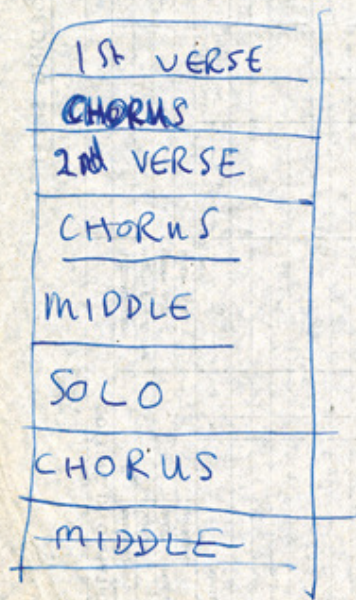 1st VERSE
CHORUS
2nd VERSE
CHORUS
MIDDLE
SOLO
CHORUS
MIDDLE